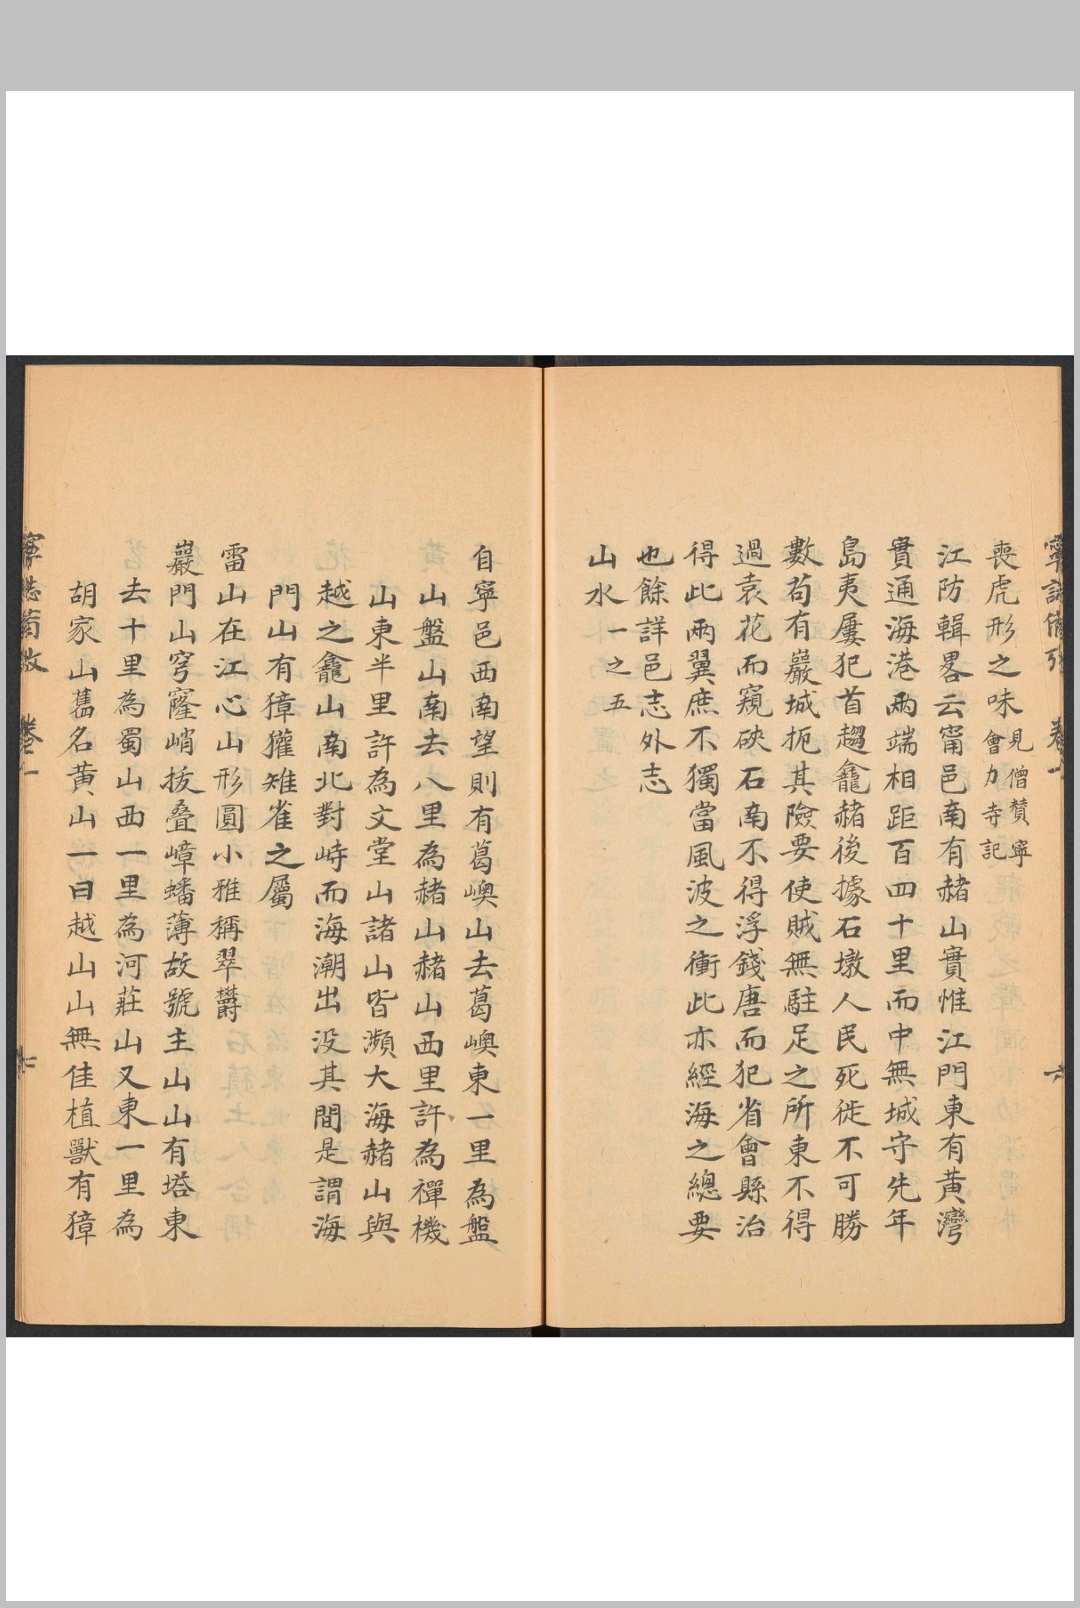 喪虎形之味見僧贊寧會力寺記
江防輯畧云甯邑南有赭山實惟江門東有黃灣
實通海港兩端相距百四十里而中無城守先年
島夷屢犯首趨龕赭後據石墩人民死徙不可勝
數茍有巖城扼其險要使賊無駐足之所東不得
過袁花而窺硤石南不得浮錢唐而犯省會縣治
得此兩翼庶不獨當風波之衝此亦經海之總要
也餘詳邑志外志
山水一之五
自寧邑西南望則有葛嶴山去葛嶴東一里為盤
山盤山南去八里為赭山赭山西里許為禪機
山東半里許為文堂山諸山皆瀕大海赭山與
越之龕山南北對峙而海潮出没其間是謂海
門山有獐獾雉雀之屬
雷山在江心山形圓小雅稱翠欝
巖門山穹窿峭拔叠嶂蟠薄故號主山山有塔東
去十里為蜀山西一里為河莊山又東一里為
胡家山舊名黃山一曰越山山無佳植獸有獐